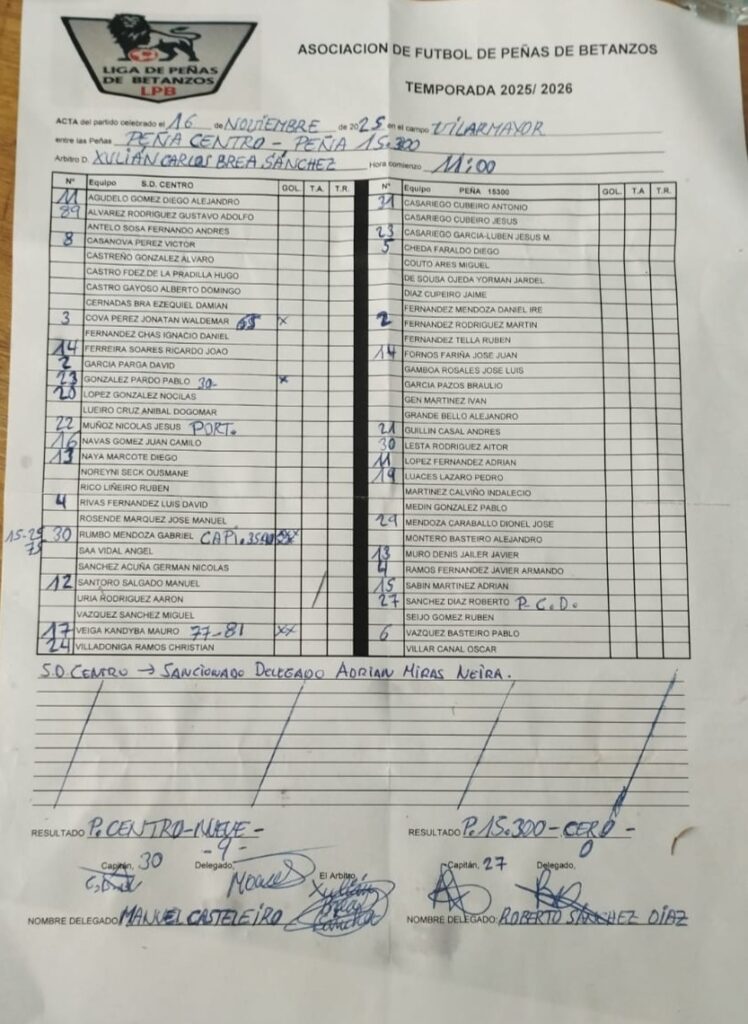 LIGA DE PEÑAS
DE BETANZOS
LPB
ASOCIACION DE FUTBOL DE PEÑAS DE BETANZOS
TEMPORADA 2025/ 2026
ACTA del partido celebrado el 16 de NOVIEMBRE de 2025 en el campo VILARMAYOR
entre las Peñas PEÑA CENTRO - PEÑA 15.300
Arbitro D. XULIÁN CARLOS BREA SÁNCHEZ Hora comienzo 11:00
Nº Equipo S.D. CENTRO GOL. T.A. T.R.
11 AGUDELO GOMEZ DIEGO ALEJANDRO
89 ALVAREZ RODRIGUEZ GUSTAVO ADOLFO
ANTELO SOSA FERNANDO ANDRES
8 CASANOVA PEREZ VICTOR
CASTREÑO GONZALEZ ALVARO
CASTRO FDEZ DE LA PRADILLA HUGO
CASTRO GAYOSO ALBERTO DOMINGO
CERNADAS BRA EZEQUIEL DAMIAN
3 COVA PEREZ JONATAN WALDEMAR 65 X
FERNANDEZ CHAS IGNACIO DANIEL
14 FERREIRA SOARES RICARDO JOAO
2 GARCIA PARGA DAVID
23 GONZALEZ PARDO PABLO 30- X
20 LOPEZ GONZALEZ NOCILAS
LUEIRO CRUZ ANIBAL DOGOMAR
22 MUÑOZ NICOLAS JESUS PORT.
16 NAVAS GOMEZ JUAN CAMILO
13 NAYA MARCOTE DIEGO
NOREYNI SECK OUSMANE
RICO LIÑEIRO RUBEN
4 RIVAS FERNANDEZ LUIS DAVID
ROSENDE MARQUEZ JOSE MANUEL
15-25 30 RUMBO MENDOZA GABRIEL CAPI.
75 SAA VIDAL ANGEL
SANCHEZ ACUÑA GERMAN NICOLAS
12 SANTORO SALGADO MANUEL
URIA RODRIGUEZ AARON
VAZQUEZ SANCHEZ MIGUEL
17 VEIGA KANDYBA MAURO 77-81 XX
24 VILLADONIGA RAMOS CHRISTIAN
Nº Equipo PEÑA 15300 GOL. T.A T.R.
31 CASARIEGO CUBEIRO ANTONIO
CASARIEGO CUBEIRO JESUS
23 CASARIEGO GARCIA-LUBEN JESUS M.
5 CHEDA FARALDO DIEGO
COUTO ARES MIGUEL
DE SOUSA OJEDA YORMAN JARDEL
DIAZ CUPEIRO JAIME
FERNANDEZ MENDOZA DANIEL IRE
2 FERNANDEZ RODRIGUEZ MARTIN
FERNANDEZ TELLA RUBEN
14 FORNOS FARIÑA JOSE JUAN
GAMBOA ROSALES JOSE LUIS
GARCIA PAZOS BRAULIO
GEN MARTINEZ IVAN
GRANDE BELLO ALEJANDRO
21 GUILLIN CASAL ANDRES
30 LESTA RODRIGUEZ AITOR
11 LOPEZ FERNANDEZ ADRIAN
19 LUACES LAZARO PEDRO
MARTINEZ CALVIÑO INDALECIO
MEDIN GONZALEZ PABLO
29 MENDOZA CARABALLO DIONEL JOSE
MONTERO BASTEIRO ALEJANDRO
13 MURO DENIS JAILER JAVIER
4 RAMOS FERNANDEZ JAVIER ARMANDO
15 SABIN MARTINEZ ADRIAN
27 SANCHEZ DIAZ ROBERTO P.C.D.
SEIJO GOMEZ RUBEN
6 VAZQUEZ BASTEIRO PABLO
VILLAR CANAL OSCAR
S.D. CENTRO → SANCIONADO DELEGADO ADRIAN MIRAS NEIRA.
RESULTADO P. CENTRO-NUEVE- RESULTADO P. 15.300-CERO-
-9- 0
Capitán, 30 Delegado, Capitán, 27 Delegado,
El Arbitro,
Xulián
Brea
Sánchez
NOMBRE DELEGADO MANUEL CASTELEIRO NOMBRE DELEGADO ROBERTO SÁNCHEZ DÍAZ